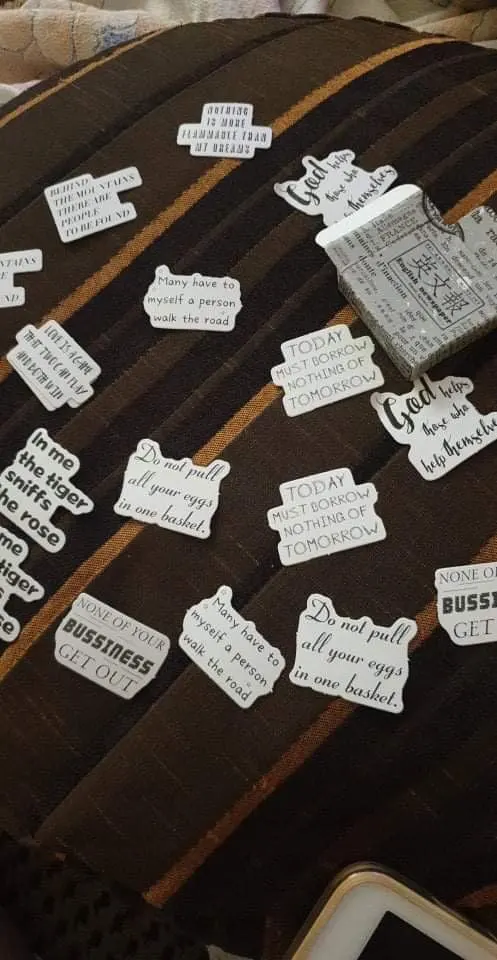 NOTHING
IS MORE
FLAMMABLE THAN
MY DREAMS
God helps
those who
themselves
BEHIND
THE MOUNTAINS
THERE ARE
PEOPLE
TO BE FOUND
FRANC
英文報
English newspaper
Many have to
myself a person
walk the road
TODAY
MUST BORROW
NOTHING OF
TOMORROW
LOVE IS A GAME
THAT TWO CAN PLAY
AND BOTH WIN
God helps
those who
help themselve
In me
the tiger
sniffs
he rose
Do not pull
all your eggs
in one basket.
TODAY
MUST BORROW
NOTHING OF
TOMORROW
me
tiger
se
NONE OF YOUR
BUSSINESS
GET OUT
Many have to
myself a person
walk the road
Do not pull
all your eggs
in one basket.
NONE OF
BUSSI
GET